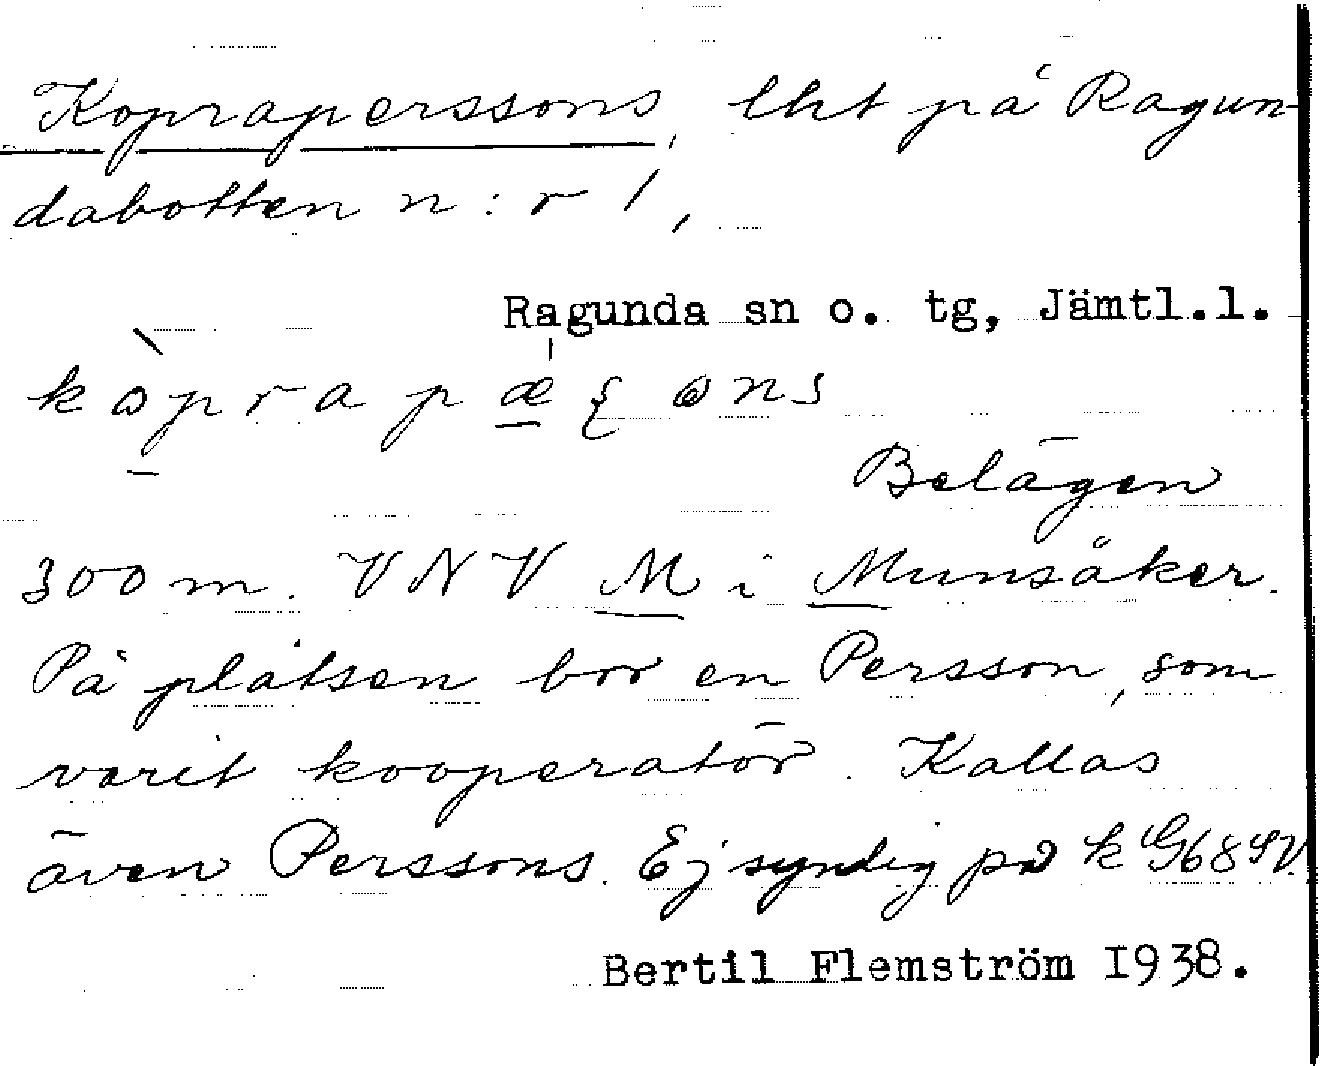 Koprapersssons, lht på Ragun-
dabotten n:r 1,
Ragunda sn o. tg, Jämtl.l.
Belägen
300 m. VNV M i Munsåker.
På platsen bor en Persson, som
varit kooperatör. Kallas
även Perssons. Ej synlig på k G68SV.
Bertil Flemström 1938.